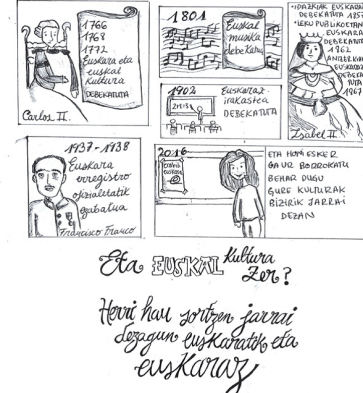 1766
1768
1772
Euskara eta
euskal
kultura
DEBEKATUTA
Carlos II.
1801
Euskal
musika
debekatua
1902
Euskaraz
irakastea
DEBEKATUTA
2+1=3
•IDAZKIAK EUSKARAZ
DEBEKATUTA
•LEKU PUBLIKOETAN
EUSKARA
DEBEKATUTA
1862
ANTZERKIAK
EUSKARAZ
DEBEKATUTA
1867
Isabel II.
1937-1938
Euskara
erregistro
ofizialetatik
ezabatua
Francisco Franco
2016
ETA HORI ESKER
GAUR BORROKATU
BEHAR DUGU
GURE KULTURAK
BIZIRIK JARRAI
DEZAN
Eta EUSKAL kultura
zer?
Herri hau sortzen jarrai
dezagun euskaratik eta
euskaraz